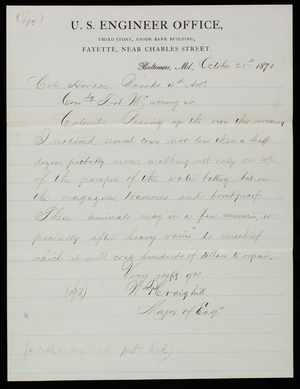 (Copy)
U. S. ENGINEER OFFICE,
THIRD STORY, UNION BANK BUILDING,
FAYETTE, NEAR CHARLES STREET.
Baltimore, Md., October 21st 187
Col. Horace Brooks 4th Art.
Comdg Fort McHenry
Colonel: Passing up the river this morning
I noticed several cows not less than a half
dozen, probably more, walking not only on top
of the parapet of the water battery but on
the magazines, traverses and bombproof.
These animals may in a few minutes, es-
pecially after heavy rains do mischief
which it will cost hundreds of dollars to repair.
Very respy yrs
Wm P. Craighill
Major of Engrs